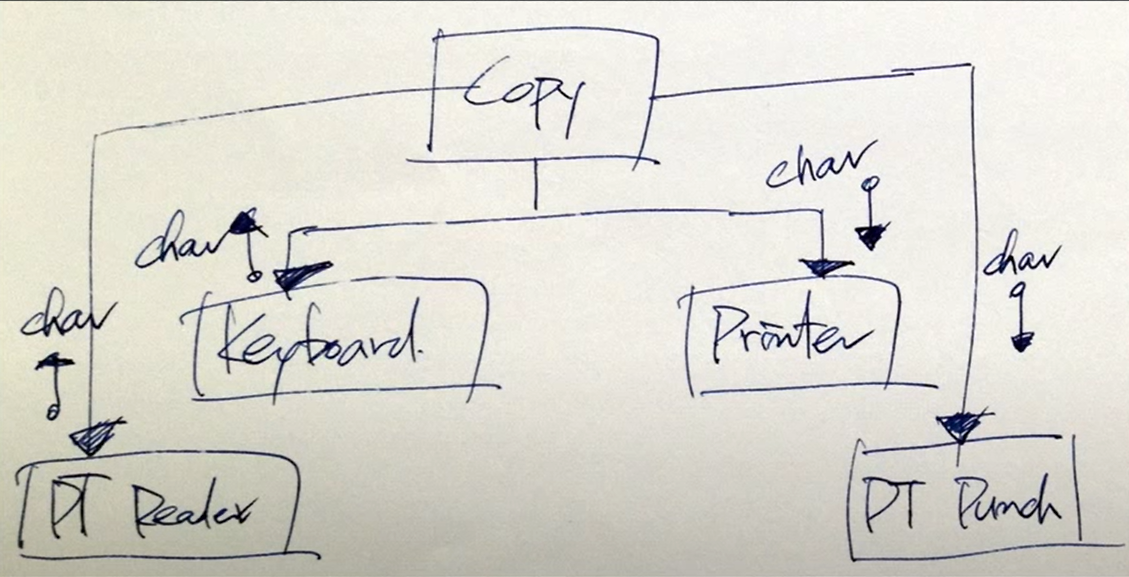 Copy
char
char
char
char
Keyboard.
Printer
PT Reader
PT Punch